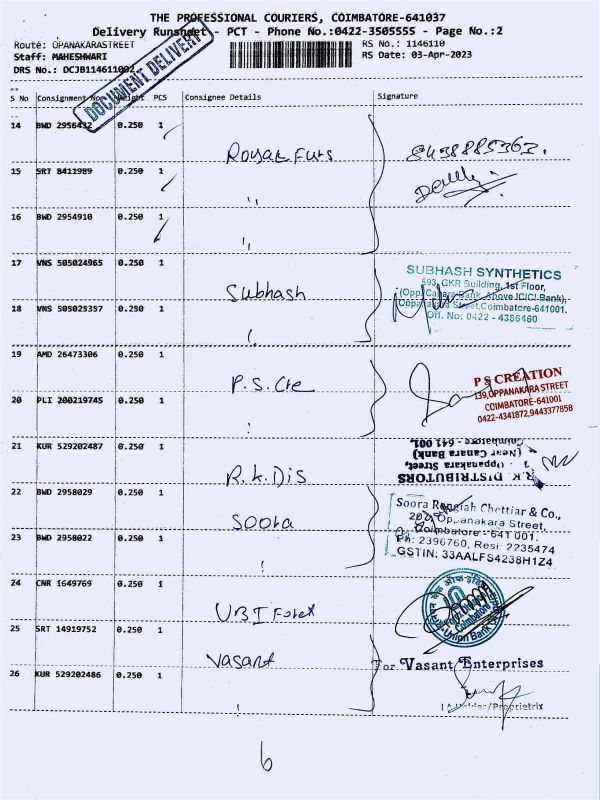 THE PROFESSIONAL COURIERS, COIMBATORE-641037
Delivery Runsheet - PCT - Phone No.:0422-3505555 - Page No.:2
Route: OPANAKARASTREET RS No.: 1146110
Staff: MAHESHWARI RS Date: 03-Apr-2023
DRS No.: DCJB114611002
DOCUMENT DELIVERY
S No Consignment No. Weight PCS Consignee Details Signature
14 BWD 2956432 0.250 1
Royal Furs 8438885363.
15 SRT 8411989 0.250 1
"
16 BWD 2954910 0.250 1
"
17 VNS 505024965 0.250 1
Subhash
SUBHASH SYNTHETICS
593, GKR Building, 1st Floor,
(Opp. Canara Bank, Above ICICI Bank),
Oppanakara Street, Coimbatore-641001.
Off. No: 0422 - 4386460
18 VNS 505025357 0.250 1
"
19 AMD 26473306 0.250 1
P.S. Cre
P S CREATION
139, OPPANAKARA STREET
COIMBATORE-641001
0422-4341872,9443377858
20 PLI 200219745 0.250 1
"
21 KUR 529202487 0.250 1
R.K. Dis
R.K. DISTRIBUTORS
Oppanakara Street,
(Near Canara Bank)
Coimbatore - 641 001.
22 BWD 2958029 0.250 1
Soora
Soora Rengiah Chettiar & Co.,
Oppanakara Street,
Coimbatore - 641 001.
Ph: 2396760, Resi: 2235474
GSTIN: 33AALFS4238H1Z4
23 BWD 2958022 0.250 1
"
24 CNR 1649769 0.250 1
UBI Forex
Coimbatore
Union Bank
25 SRT 14919752 0.250 1
Vasant
For Vasant Enterprises
26 KUR 529202486 0.250 1
"
/Proprietrix
6